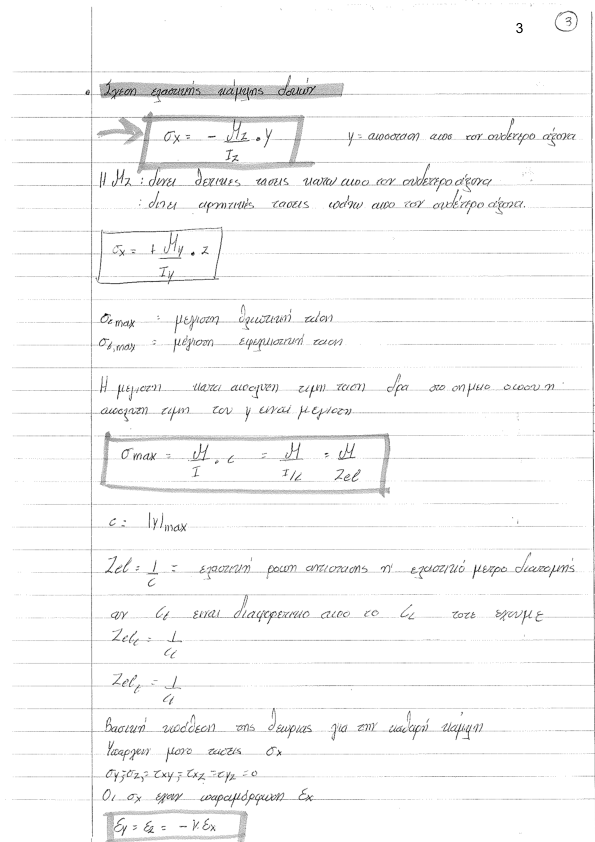 3
3
• Σχεση ελαστικής κάμψης δοκών
σx = - Mz/Iz · y    y = αποσταση απο τον ουδετερο άξονα
Η Mz : δινει θετικες τασεις κατω απο τον ουδετερο άξονα
: δινει αρνητικές τασεις πάνω απο τον ουδέτερο άξονα.
σx = + My/Iy · z
σc max = μεγιστη θλιπτική τάση
σt,max = μέγιστη εφελκιστική ταση
Η μεγιστη κατα απολυτη τιμη ταση δρα στο σημειο οπου η
απολυτη τιμη του y ειναι μεγιστη
σmax = M/I · c = M/I/c = M/Zel
c = |y|max
Zel = I/c = ελαστική ροπη αντιστασης η' ελαστικό μετρο διατομής
αν Ct ειναι διαφορετικο απο το Cc τοτε εχουμε
Zelt = I/ct
Zelc = I/
Βασική υπόθεση της θεωριας για την καθαρή κάμψη
Υπαρχουν μονο τασεις σx
σy=σz=τxy=τxz=τyz=0
Οι σx εχουν παραμόρφωση εx
εy = εz = -ν.εx